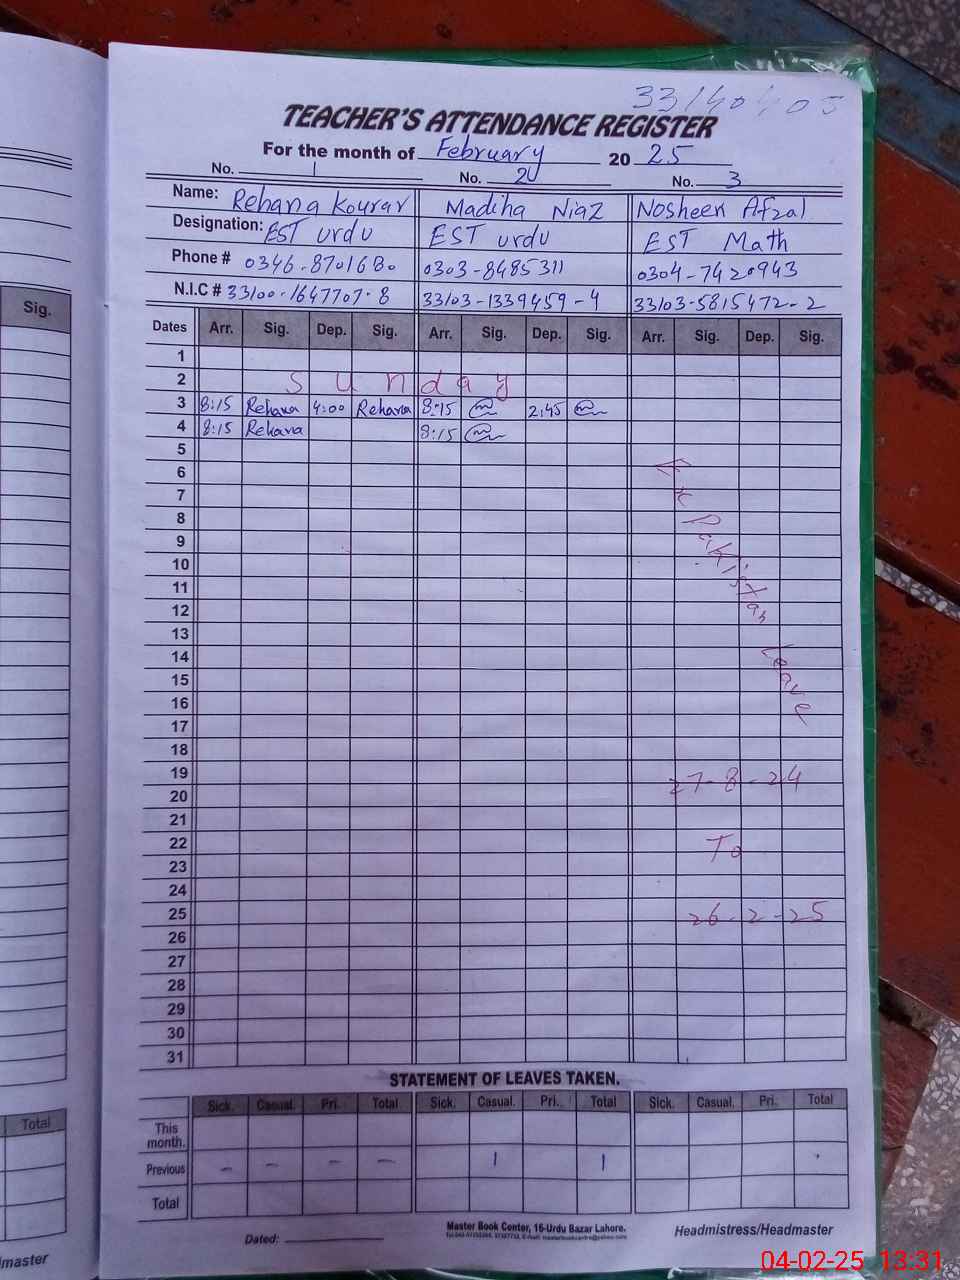 33140405
TEACHER'S ATTENDANCE REGISTER
For the month of February 20 25
No. 1 No. 2 No. 3
Name: Rehana Kousar Madiha Niaz Nosheen Afzal
Designation: EST urdu EST urdu EST Math
Phone # 0346-8701680 0303-8485311 0304-7420943
N.I.C # 33100-1647707-8 33103-1339459-4 33103-5815472-2
Sig.
Dates Arr. Sig. Dep. Sig. Arr. Sig. Dep. Sig. Arr. Sig. Dep. Sig.
1
2 Sunday
3 8:15 Rehana 4:00 Rehana 8:15 2:45
4 8:15 Rehana 8:15
5
6 Ex Pakistan Leave
7
8
9
10
11
12
13
14
15
16
17
18
19 27-8-24
20
21
22 To
23
24
25 26-2-25
26
27
28
29
30
31
STATEMENT OF LEAVES TAKEN.
Sick. Casual. Pri. Total Sick. Casual. Pri. Total Sick. Casual. Pri. Total
Total
This
month.
Previous - - - - 1 1
Total
Dated:
Master Book Center, 16-Urdu Bazar Lahore.
Headmistress/Headmaster
master
04-02-25 13:31